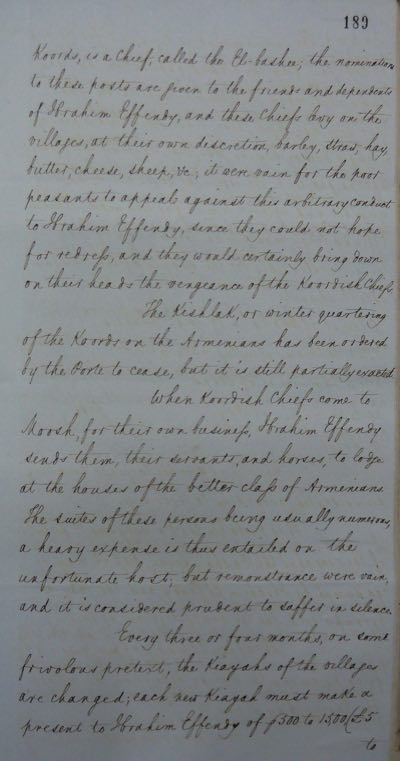 189
Koords, is a Chief, called the El-bashee; the nominations
to these posts are given to the friends and dependents
of Ibrahim Effendy, and these Chiefs levy on the
villages, at their own discretion, barley, straw, hay,
butter, cheese, sheep, &c; it were vain for the poor
peasants to appeal against this arbitrary conduct
to Ibrahim Effendy, since they could not hope
for redress, and they would certainly bring down
on their heads the vengeance of the Koordish Chiefs.
The Kishlak, or winter quartering
of the Koords on the Armenians has been ordered
by the Porte to cease, but it is still partially exacted.
When Koordish Chiefs come to
Moosh, for their own business, Ibrahim Effendy
sends them, their servants, and horses, to lodge
at the houses of the better class of Armenians.
The suites of these persons being usually numerous,
a heavy expense is thus entailed on the
unfortunate host; but remonstrance were vain,
and it is considered prudent to suffer in silence.
Every three or four months, on some
frivolous pretext, the Kiayahs of the villages
are changed; each new Kiayah must make a
present to Ibrahim Effendy of p500 to 1500 (£5
to